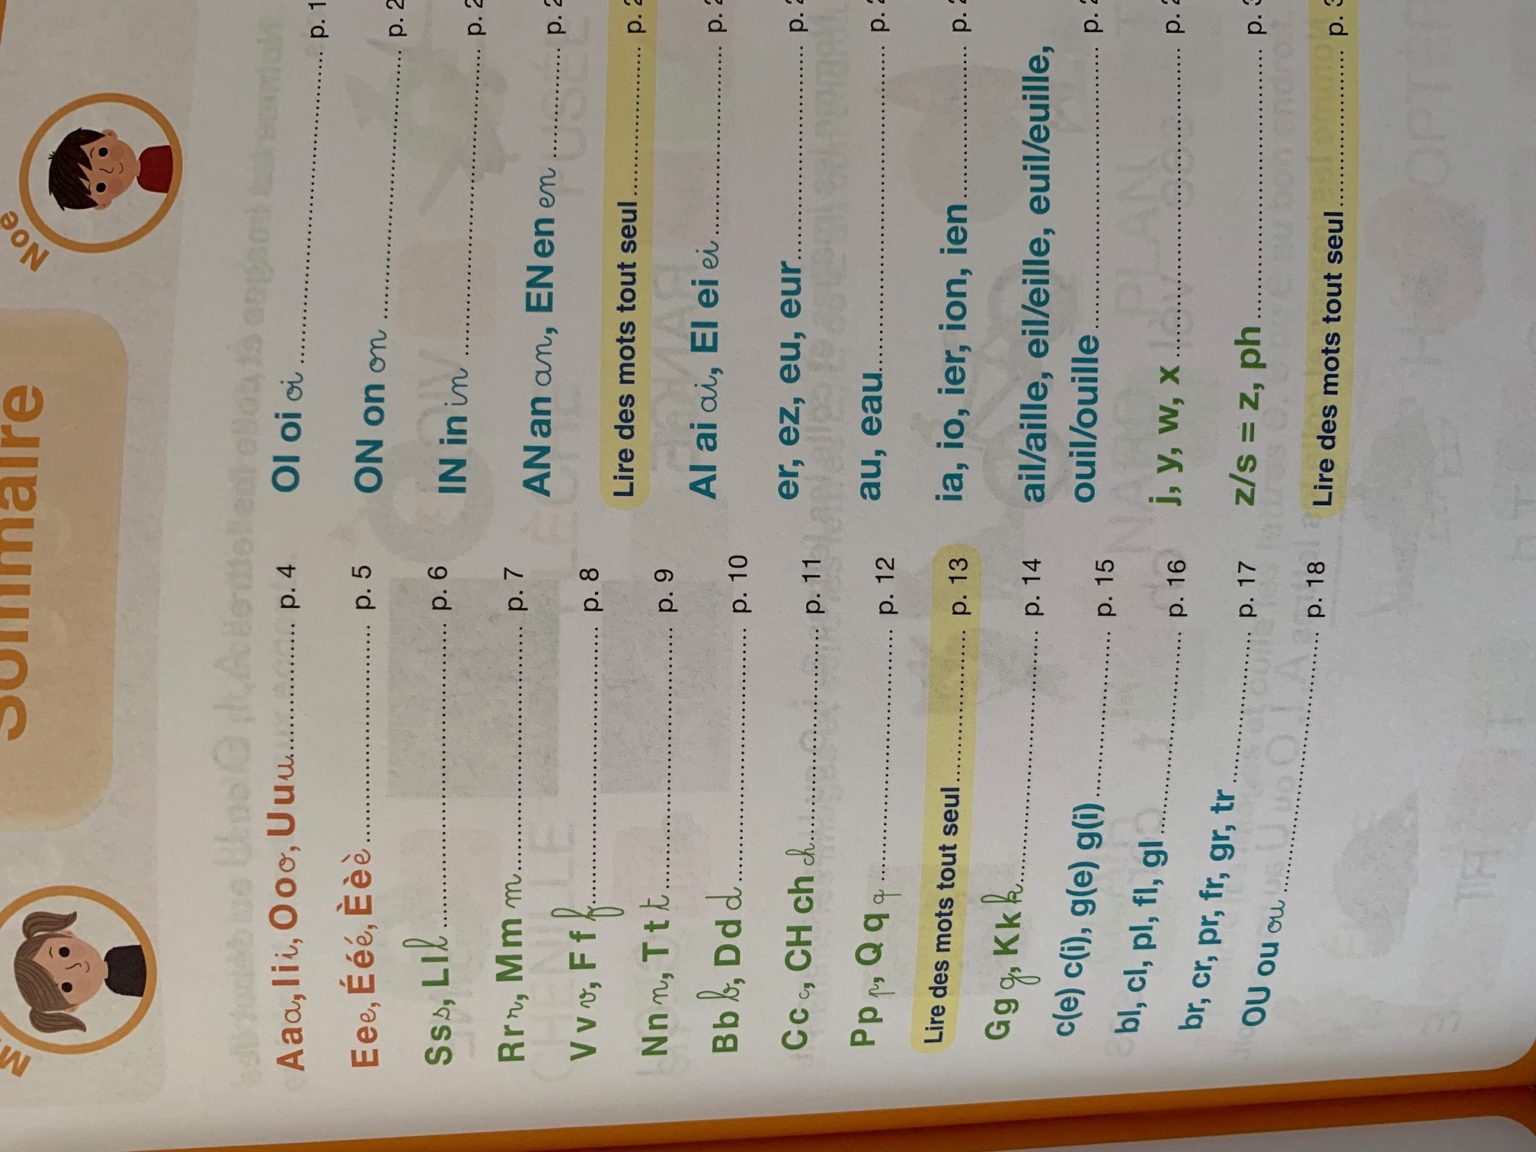 Sommaire
Noé
Aa a, Ii i, Oo o, Uu u .......... p. 4
Ee e, Éé é, Èè è .......... p. 5
Ss s, Ll l .......... p. 6
Rr r, Mm m .......... p. 7
Vv v, Ff f .......... p. 8
Nn n, Tt t .......... p. 9
Bb b, Dd d .......... p. 10
Cc c, CH ch ch .......... p. 11
Pp p, Qq q .......... p. 12
Lire des mots tout seul .......... p. 13
Gg g, Kk k .......... p. 14
c(e) c(i), g(e) g(i) .......... p. 15
bl, cl, pl, fl, gl .......... p. 16
br, cr, pr, fr, gr, tr .......... p. 17
OU ou ou .......... p. 18
OI oi oi .......... p.
ON on on .......... p.
IN in in .......... p.
AN an an, EN en en .......... p.
Lire des mots tout seul .......... p.
AI ai ai, EI ei ei .......... p.
er, ez, eu, eur .......... p.
au, eau .......... p.
ia, io, ier, ion, ien .......... p.
ail/aille, eil/eille, euil/euille,
ouil/ouille .......... p.
j, y, w, x .......... p.
z/s = z, ph .......... p.
Lire des mots tout seul .......... p.